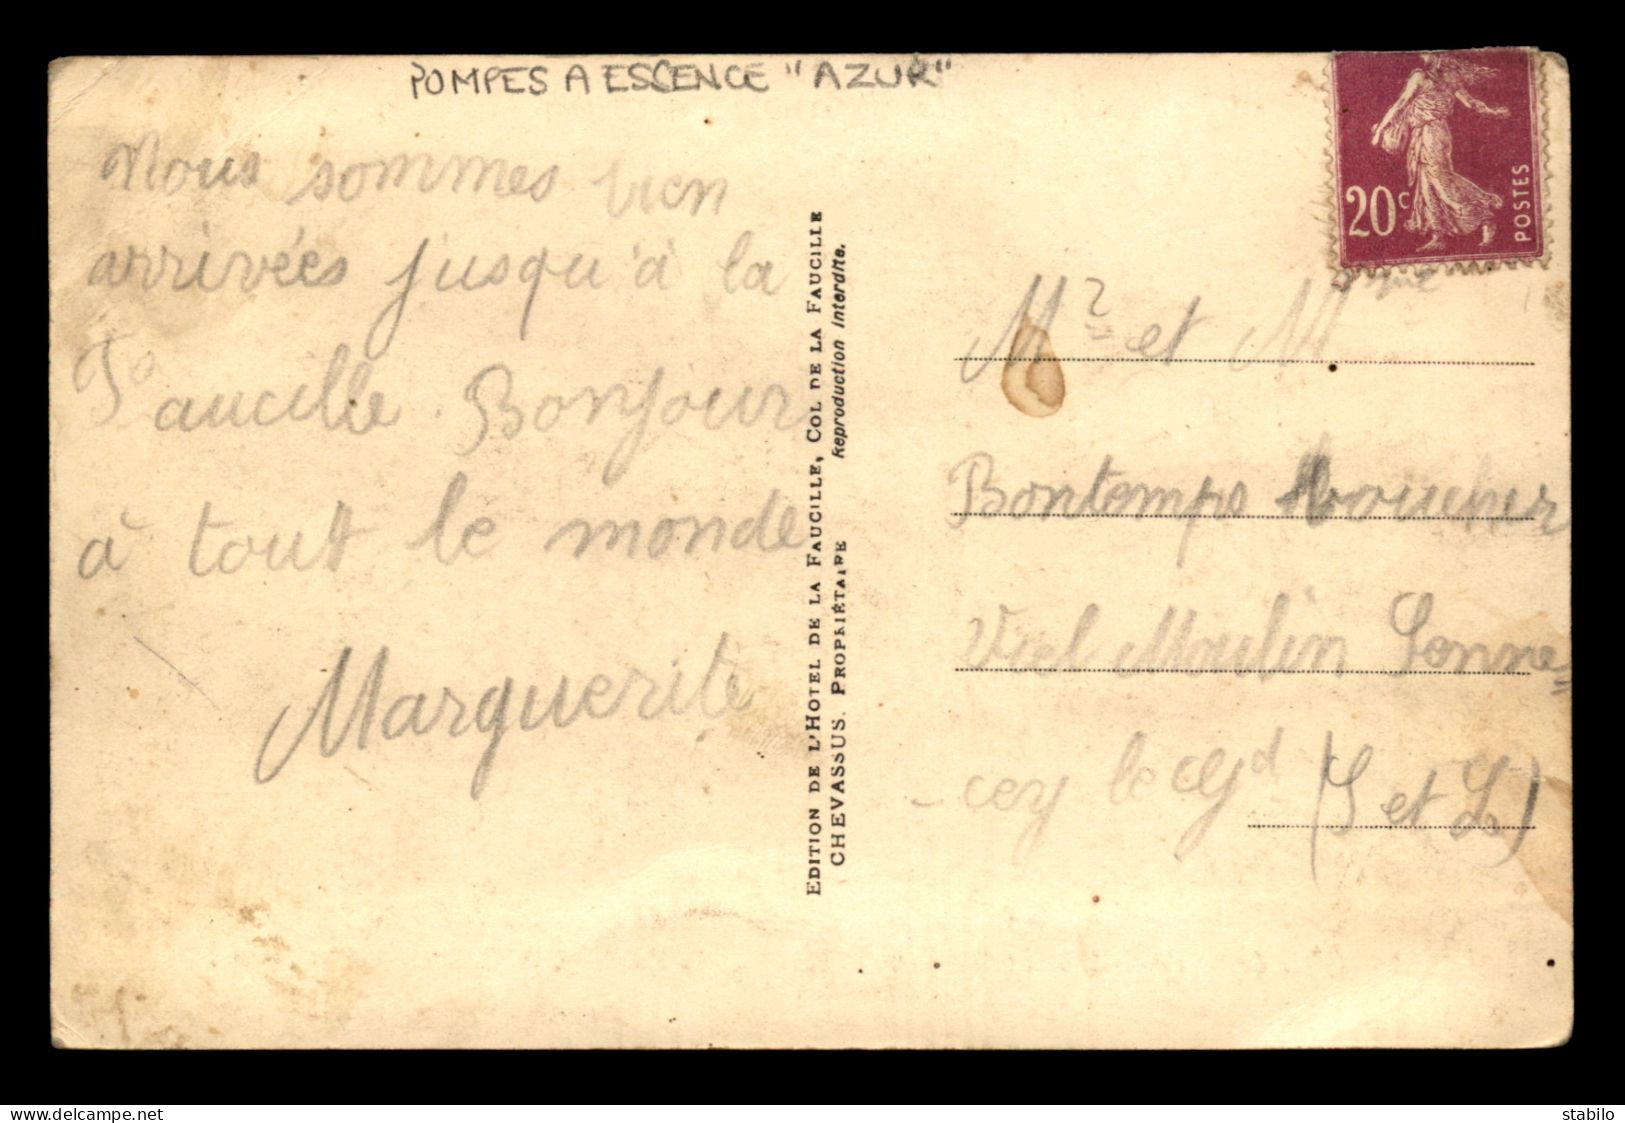 POMPES A ESCENCE "AZUR"
Nous sommes bien
arrivées jusqu'à la
Faucille. Bonjour
à tout le monde
Marguerite
EDITION DE L'HOTEL DE LA FAUCILLE, COL DE LA FAUCILLE
CHEVASSUS. PROPRIÉTAIRE Reproduction Interdite.
20c
POSTES
Mr et Mme
Bontemps
Viel Moulin Senne=
-cey le Gd (S et L)
www.delcampe.net
stabilo